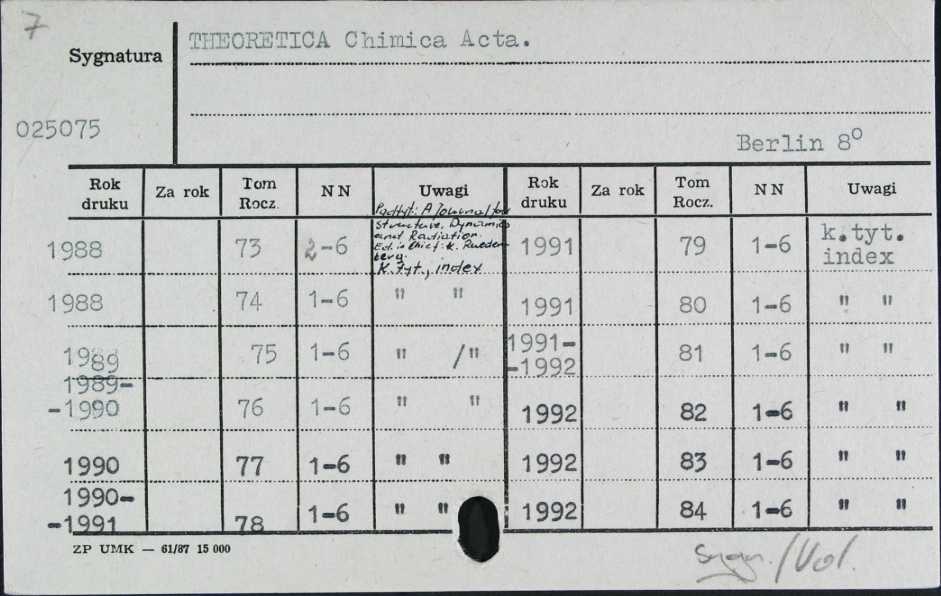 7
Sygnatura
THEORETICA Chimica Acta.
025075
Berlin 8°
Rok druku Za rok Tom Rocz. NN Uwagi Rok druku Za rok Tom Rocz. NN Uwagi
Podtyt: A Journal for
Structure, Dynamics
and Radiation.
Ed. in Chief: K. Rueden-
berg.
K. tyt., index
1988 73 2-6 1991 79 1-6 k.tyt. index
1988 74 1-6 " " 1991 80 1-6 " "
1989 75 1-6 " /" 1991- -1992 81 1-6 " "
1989- -1990 76 1-6 " " 1992 82 1-6 " "
1990 77 1-6 " " 1992 83 1-6 " "
1990- -1991 78 1-6 " " 1992 84 1-6 " "
ZP UMK — 61/87 15 000
Sygn. /Vol.